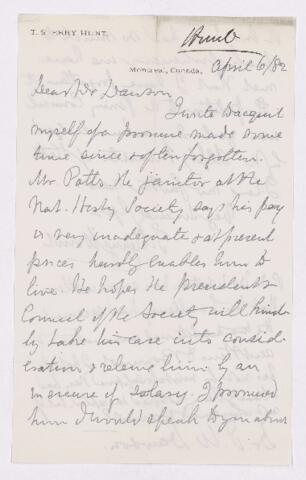 T. STERRY HUNT.
Hunt
Montreal, Canada,
April 6/82
Dear Dr Dawson,
I write to acquit
myself of a promise made some
time since & often forgotten.
Mr. Potts the janitor at the
Nat. Hist'y Society says his pay
is very inadequate & at present
prices hardly enables him to
live. He hopes the President &
Council of the Society will kindly
take his case into consid-
eration & relieve him by an
increase of salary. I promised
him I would speak to you about